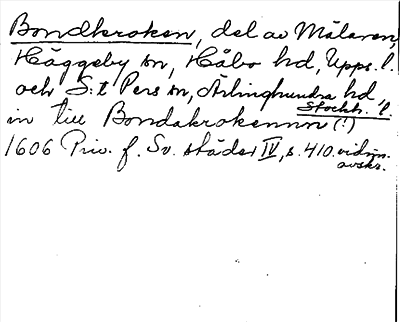 Bondkroken, del av Mälaren,
Häggeby sn, Håbo hd, Upps. l.
och S:t Pers sn, Ärlinghundra hd
Stockh. l.
in till Bondakrokennn (!)
1606 Priv. f. Sv. städer IV, s. 410. vidim.
avskr.